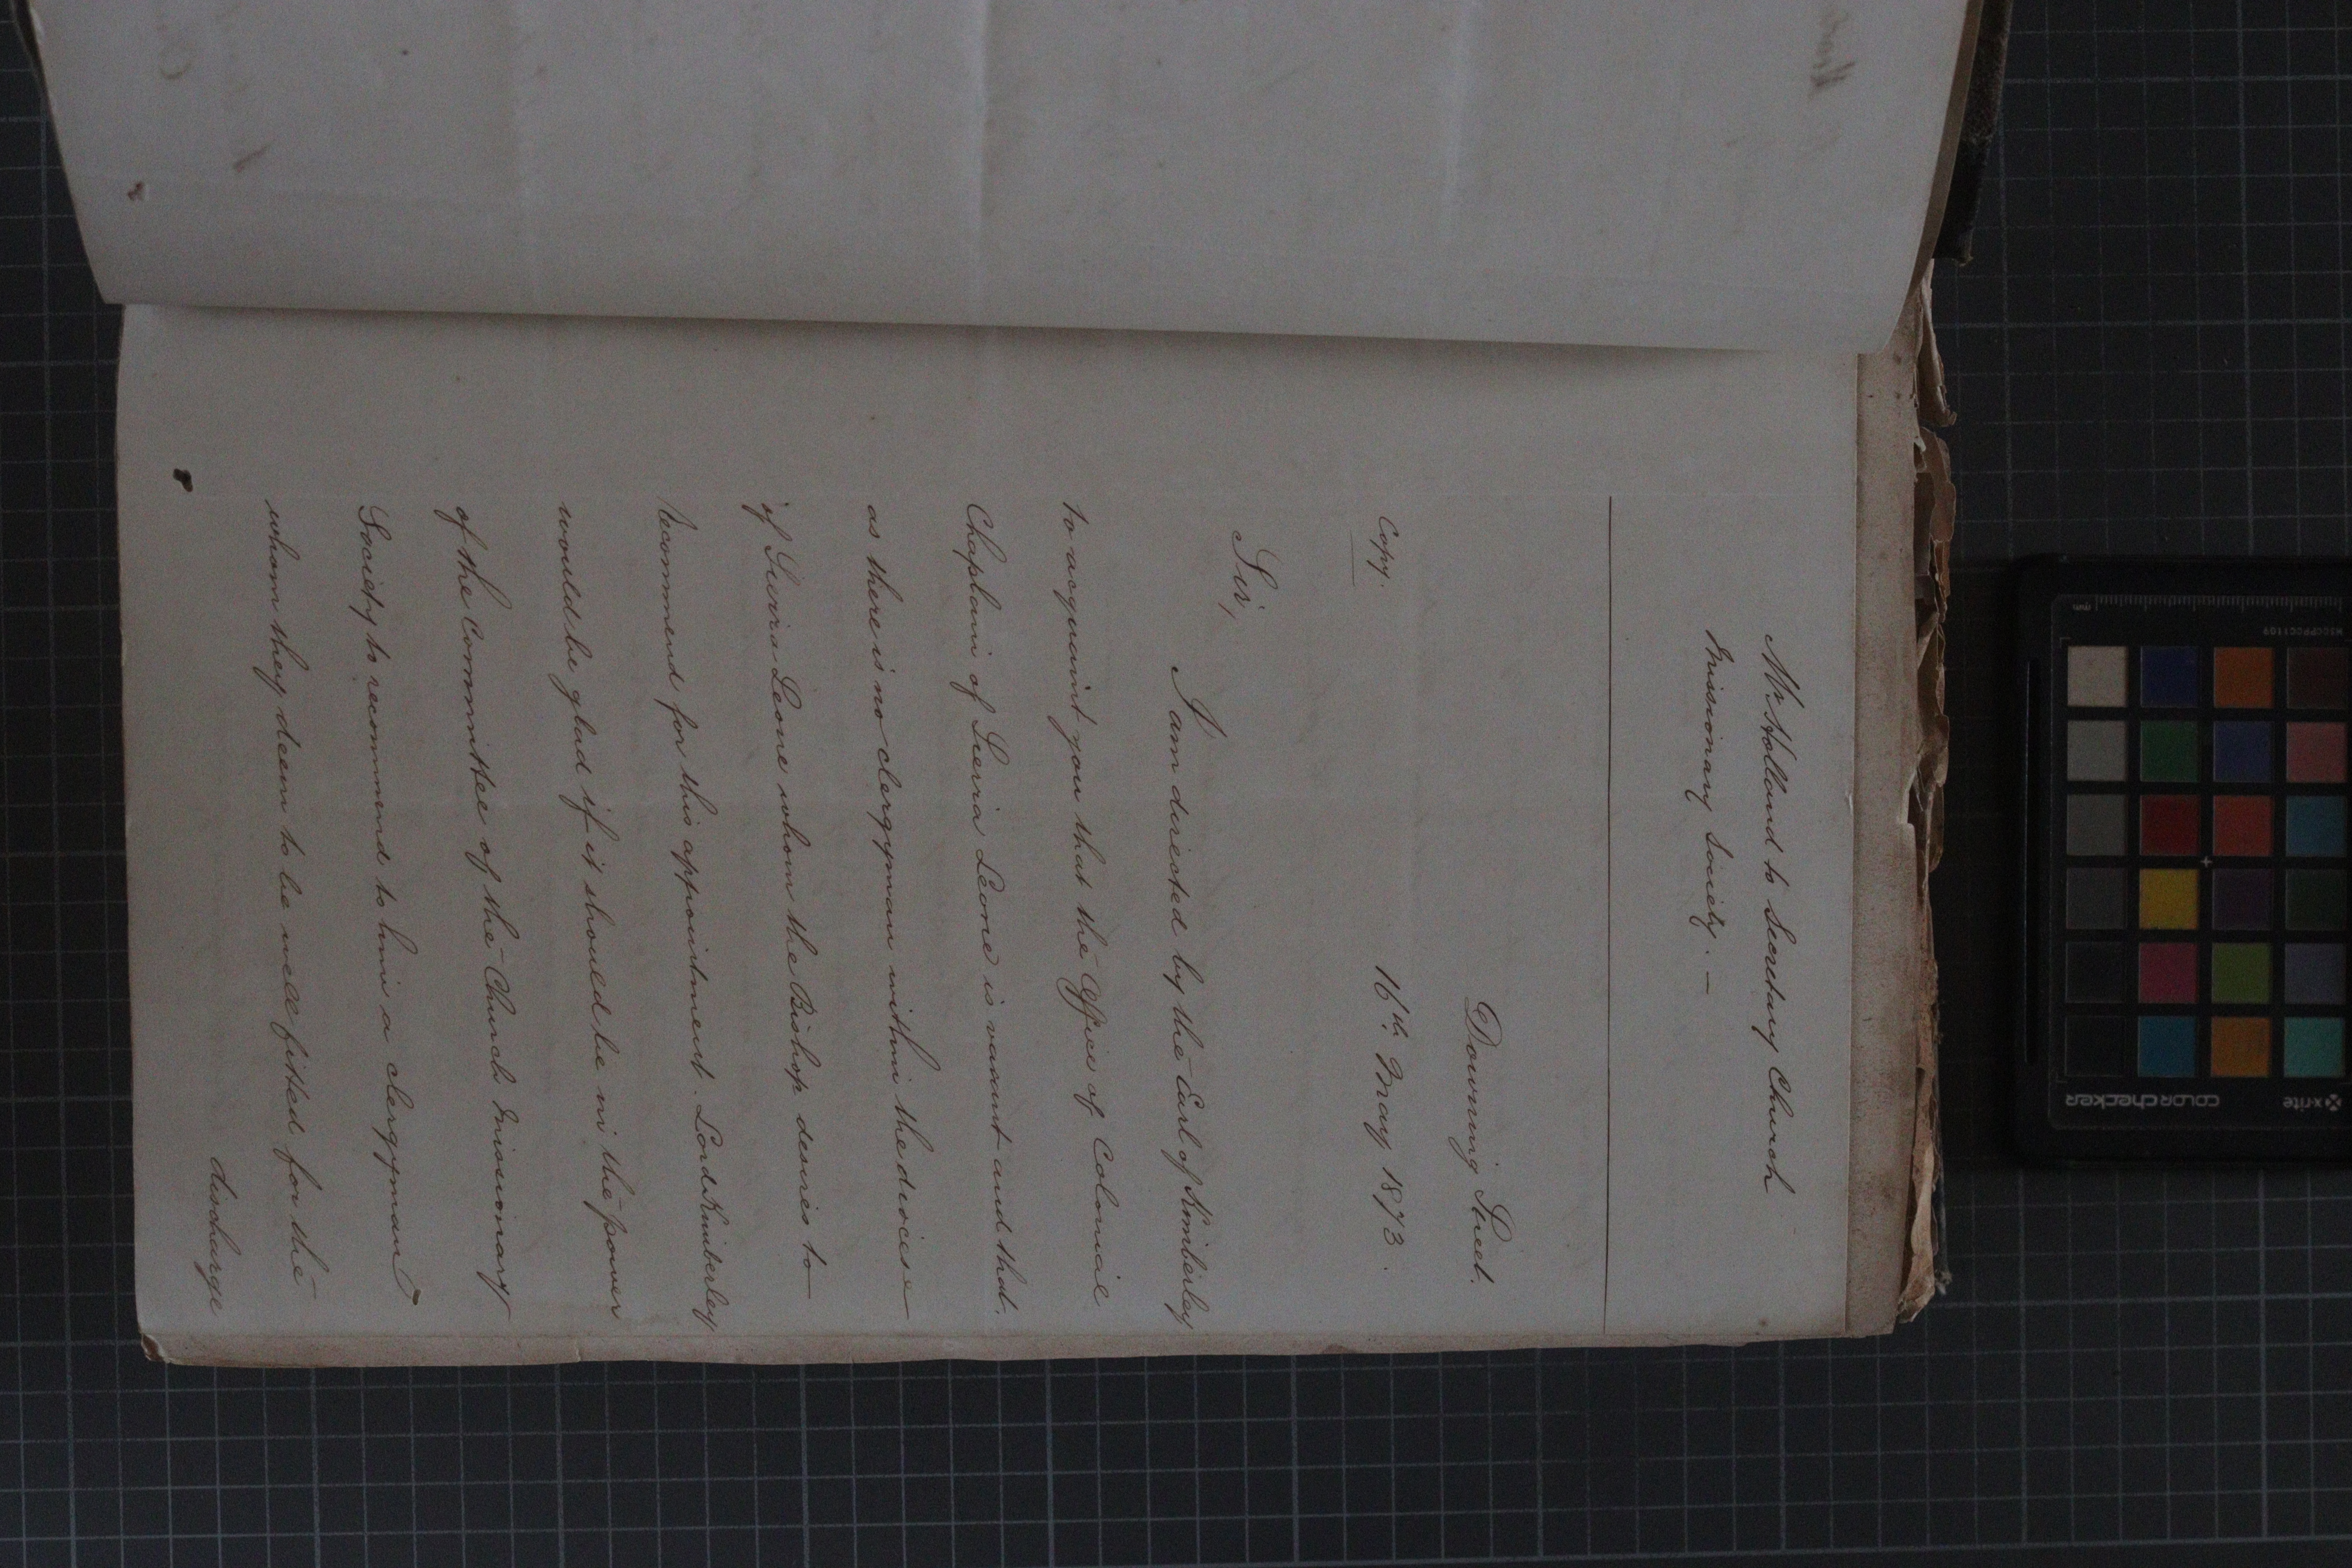 Mr Holland to Secretary Church
Missionary Society. —
Downing Street.
Copy.
16th May 1873.
Sir,
I am directed by the Earl of Kimberley
to acquaint you that the Office of Colonial
Chaplain of Sierra Leone is vacant and that
as there is no clergyman within the diocese
of Sierra Leone whom the Bishop desires to
recommend for this appointment. Lord Kimberley
would be glad if it should be in the power
of the Committee of the Church Missionary
Society to recommend to him a clergyman
whom they deem to be well fitted for the
discharge
x-rite
colorchecker
mm